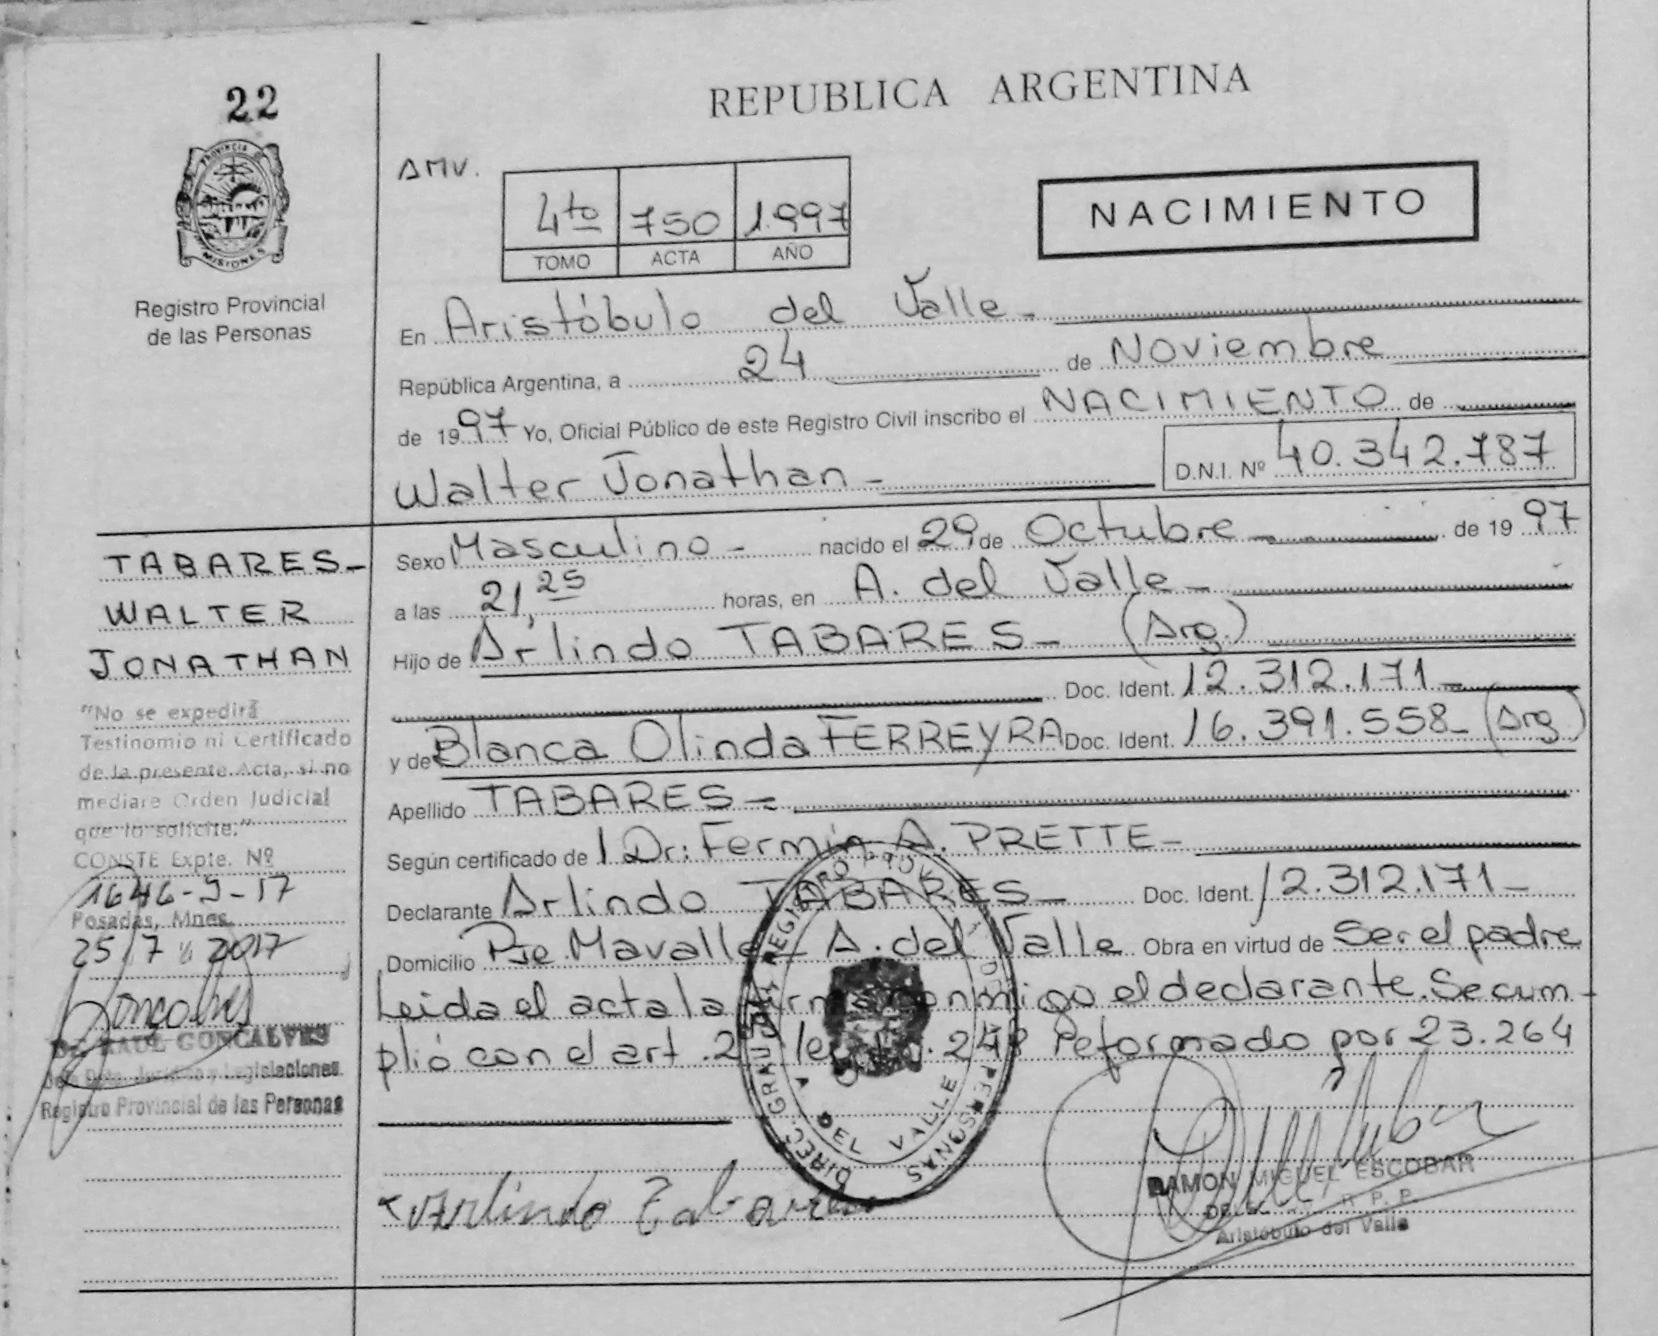 22
PROVINCIA DE
MISIONES
Registro Provincial
de las Personas
REPUBLICA ARGENTINA
AMV.
4to 750 1.997
TOMO ACTA AÑO
NACIMIENTO
En Aristóbulo del Valle -
República Argentina, a 24 de Noviembre
de 1997 Yo, Oficial Público de este Registro Civil inscribo el NACIMIENTO de
Walter Jonathan - D.N.I. Nº 40.342.787
Sexo Masculino - nacido el 29 de Octubre de 1997
a las 21,25 horas, en A. del Valle -
Hijo de Arlindo TABARES - (Arg.)
Doc. Ident. 12.312.171 -
y de Blanca Olinda FERREYRA Doc. Ident. 16.391.558 - (Arg)
Apellido TABARES -
Según certificado de Dr: Fermín A. PRETTE -
Declarante Arlindo TABARES - Doc. Ident. 12.312.171 -
Domicilio Pje. Mavalle - A. del Valle Obra en virtud de Ser el padre
Leida el acta la conmigo el declarante. Se cum-
plió con el art. 2 Reformado por 23.264
TABARES -
WALTER
JONATHAN
"No se expedirá
Testinomio ni Certificado
de la presente Acta, si no
mediare Orden Judicial
que lo solicite."
CONSTE Expte. Nº
1646-9-17
Posadas, Mnes.
25/7 2017
Goncalves
RAUL GONCALVES
y Legislaciones
Registro Provincial de las Personas
DIREC. GRAL. DEL REGISTRO PERSONAS
A DEL VALLE
Arlindo Tabares
RAMON MIGUEL ESCOBAR
R. P. P.
Aristóbulo del Valle